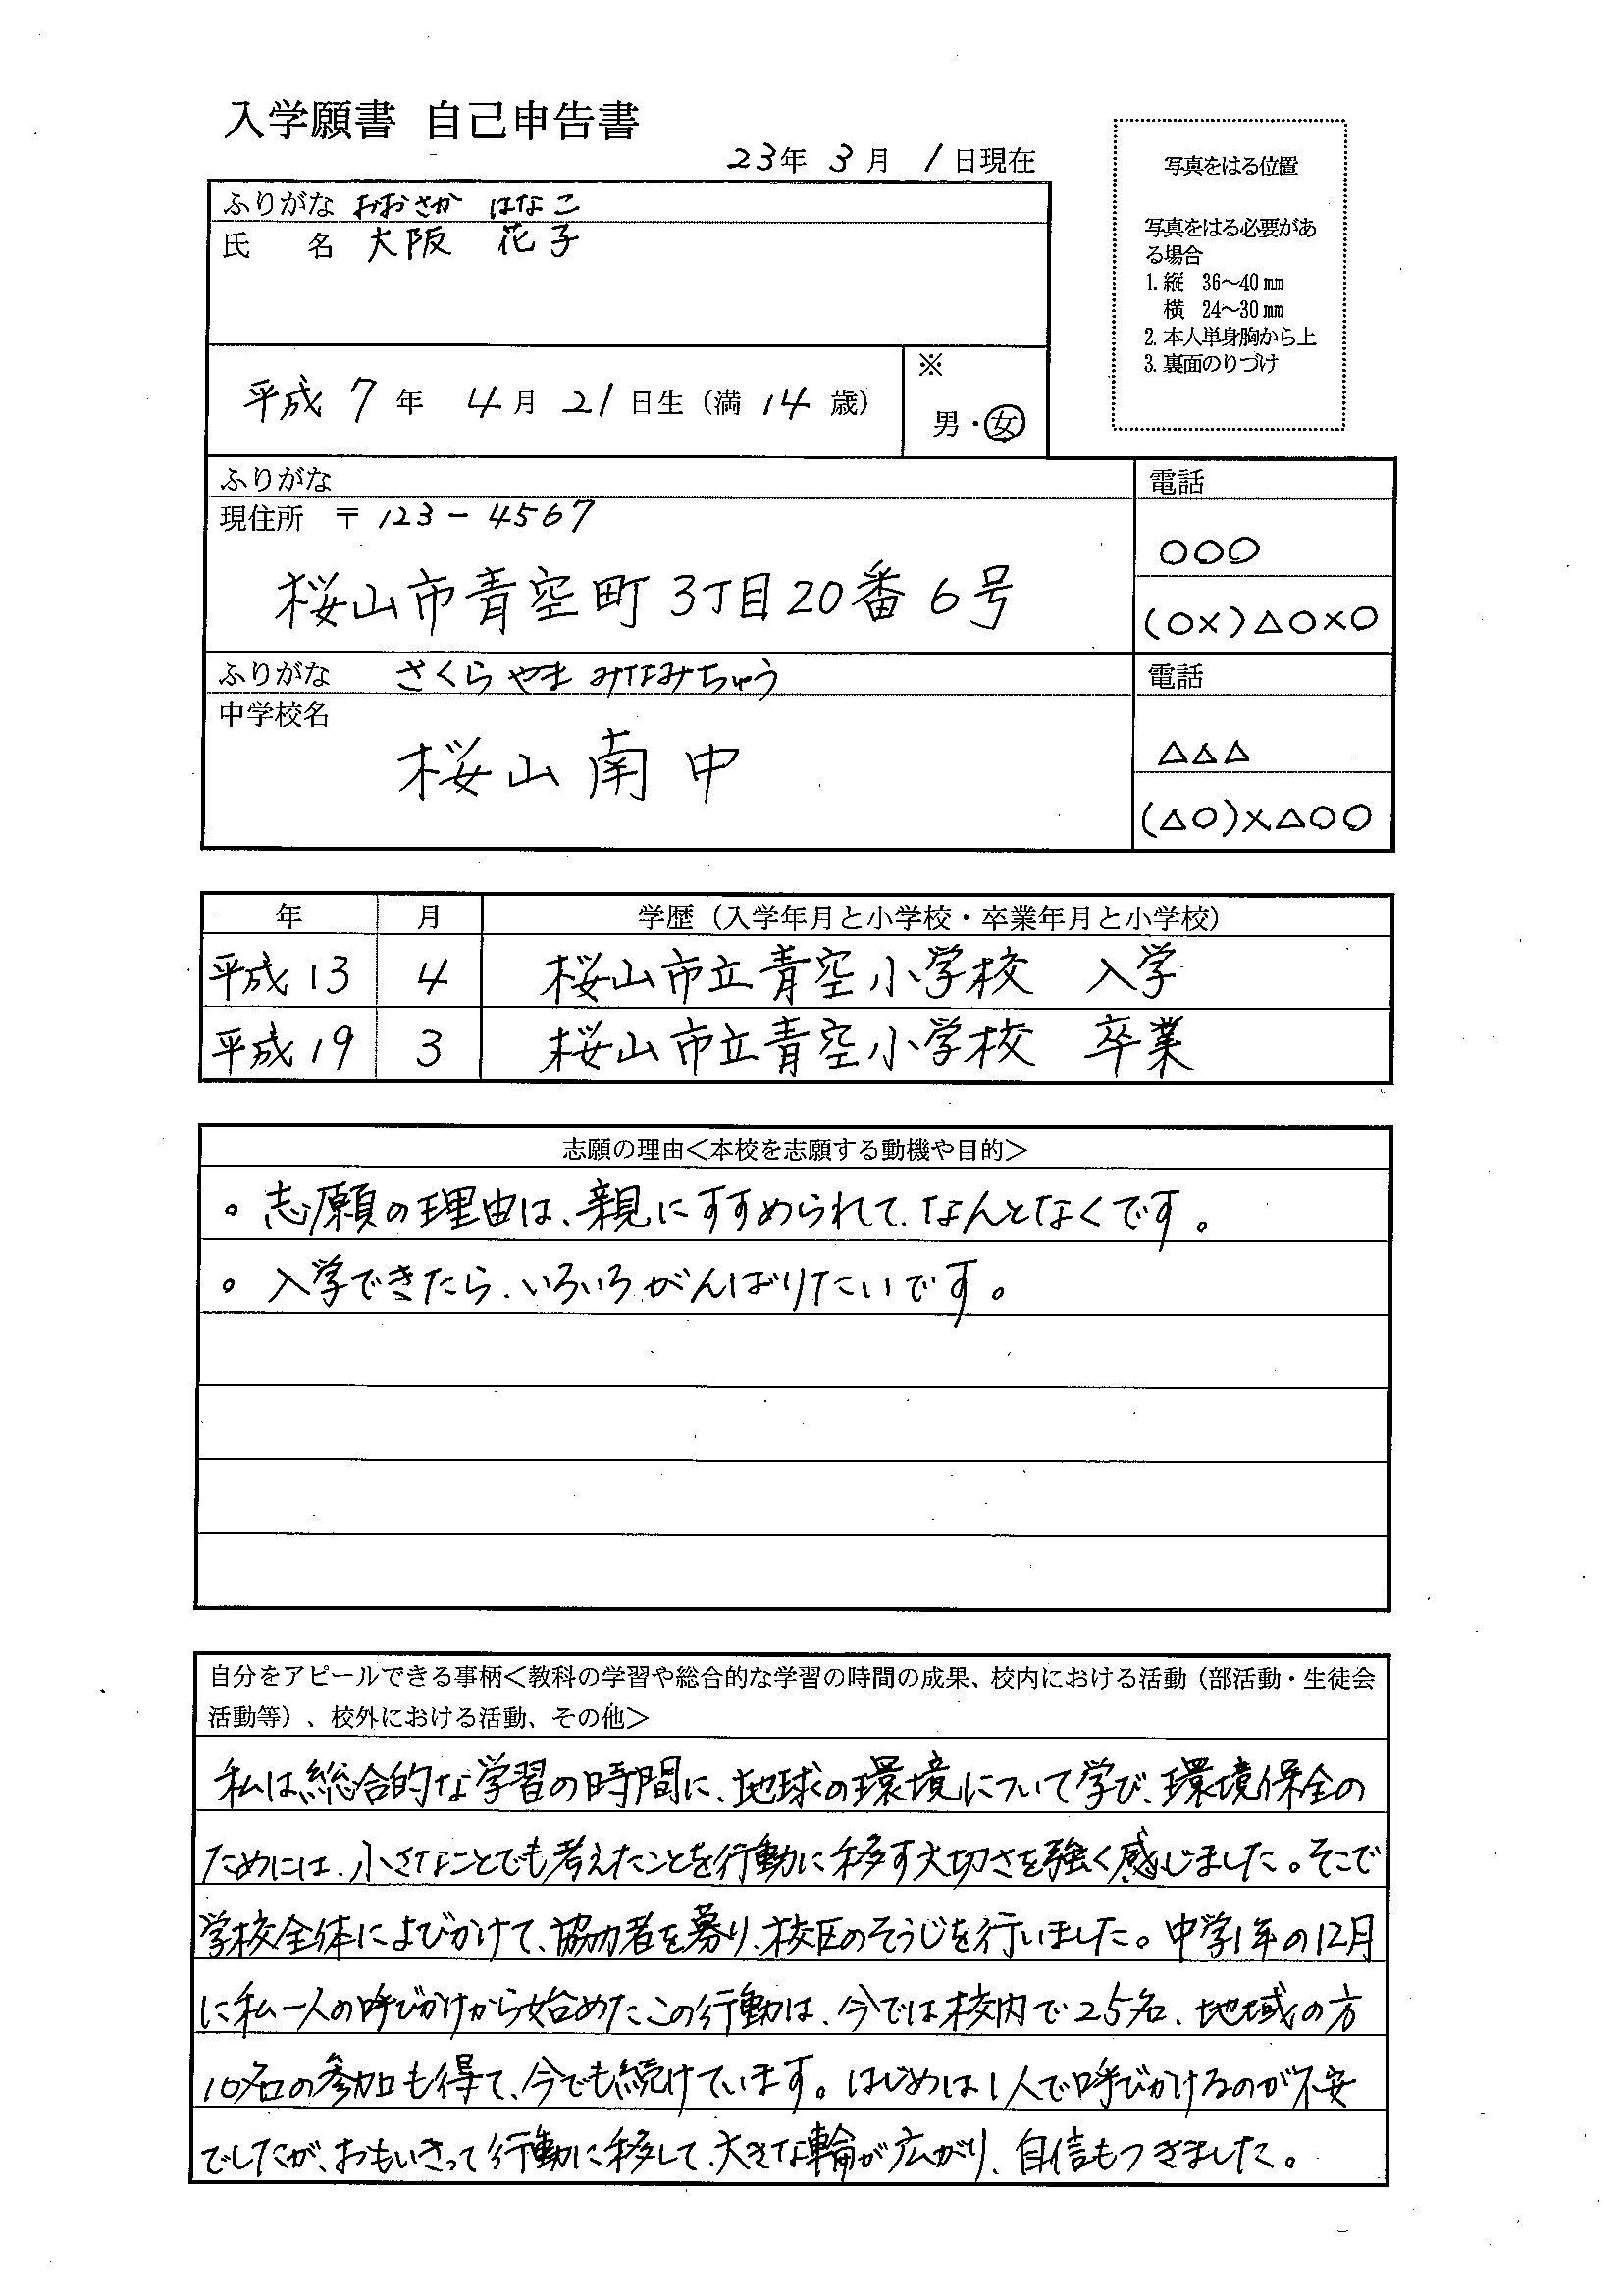 入学願書 自己申告書
23年 3月 1日現在
写真をはる位置
写真をはる必要があ
る場合
1. 縦 36～40㎜
横 24～30㎜
2. 本人単身胸から上
3. 裏面のりづけ
ふりがな おおさか はなこ
氏 名 大阪 花子
平成 7年 4月 21日生（満 14 歳）
※
男・女
ふりがな
電話
現住所 〒123-4567
○○○
桜山市青空町3丁目20番6号
(○×)△○×○
ふりがな さくらやまみなみちゅう
電話
中学校名
桜山南中
△△△
(△○)×△○○
年 月 学歴（入学年月と小学校・卒業年月と小学校）
平成13 4 桜山市立青空小学校 入学
平成19 3 桜山市立青空小学校 卒業
志願の理由＜本校を志願する動機や目的＞
。志願の理由は、親にすすめられて、なんとなくです。
。入学できたら、いろいろがんばりたいです。
自分をアピールできる事柄＜教科の学習や総合的な学習の時間の成果、校内における活動（部活動・生徒会
活動等）、校外における活動、その他＞
私は総合的な学習の時間に、地球の環境について学び、環境保全の
ためには、小さなことでも考えたことを行動に移す大切さを強く感じました。そこで
学校全体によびかけて、協力者を募り、校区のそうじを行いました。中学1年の12月
に私一人の呼びかけから始めたこの行動は、今では校内で25名、地域の方
10名の参加も得て、今でも続けています。はじめは1人で呼びかけるのが不安
でしたが、おもいきって行動に移して、大きな輪が広がり、自信もつきました。